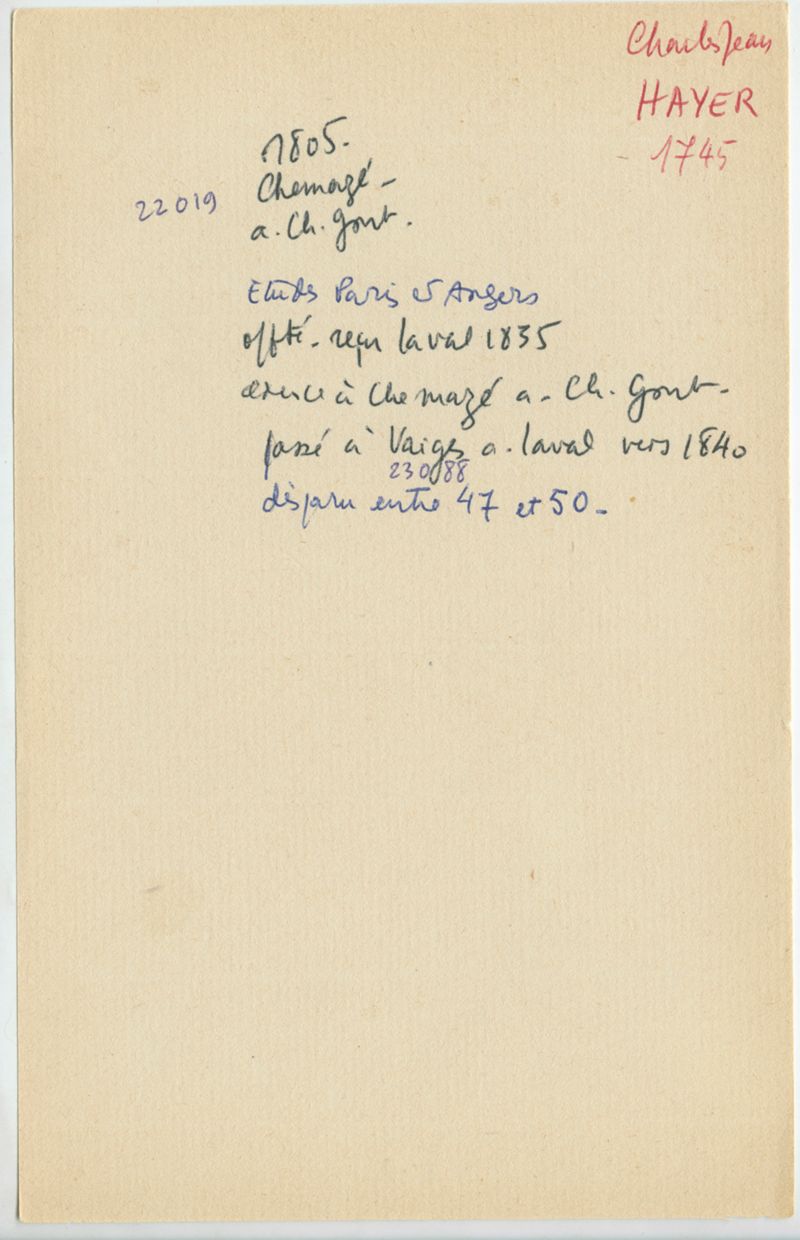 Charles Jean
HAYER
1745
1805.
Chemazé -
22019
a. Ch. Gont.
Etudes Paris et Angers
offté. reçu Laval 1835
exerce à Chemazé a. Ch. Gont.
passé à Vaiges a. Laval vers 1840
23088
disparu entre 47 et 50.